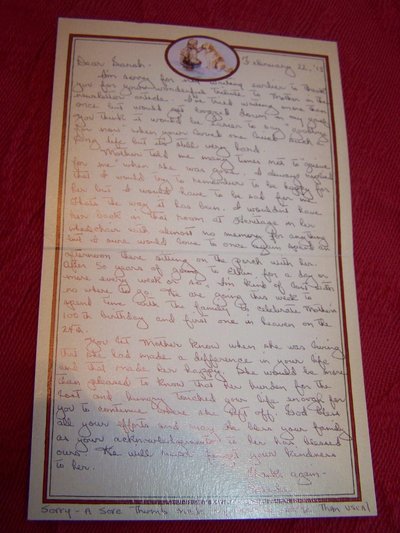 Dear Sarah - February 22, '13
I'm sorry for not writing earlier to thank
you for your wonderful tribute to Mother in the
newsletter article. I've tried writing more than
once but would get bogged down in my
You think it would be easier to say goodbye
for now when your loved one lived such a
long life but it's still very hard.
Mother told me many times not to grieve
for me when she was gone. I always
that I would try to remember to be happy for
her but I would have to be sad for me.
That's the way it has been. I wouldn't have
her back in that room at Heritage in her
wheelchair with almost no memory for anything
but I sure would love to once again spend an
afternoon there sitting on the porch with her.
After 50 years of going to for a day or
more every week or so, I'm kind of lost with
no where to go. We are going this week to
spend time with the family to celebrate Mother's
100th birthday and first one in heaven on the
24th.
You let Mother know when she was living
that she had made a difference in your life
and that made her happy. She would be more
than pleased to know that her burden for the
lost and hungry touched your life enough for
you to continue where she left off. God bless
all your efforts and may He bless your family
as your acknowledgment to her has blessed
ours. We will never forget your kindness
to her.
Thanks again -
Sorry - A Sore Thumb than usual